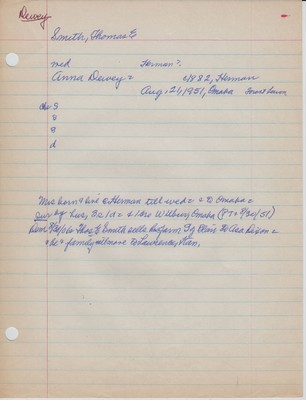 Dewey
Smith, Thomas E
md Herman?
Anna Dewey = c/882, Herman
Aug. 21, 1951, Omaha Forest Lawn
chn S
s
g
d
Mrs born & liv Herman till wed & to Omaha
sur by hus, Omaha (PT 8/30/51)
Thos E Smith sells farm to Asa Dixon
& he & family will move to Lawrence, Kan,